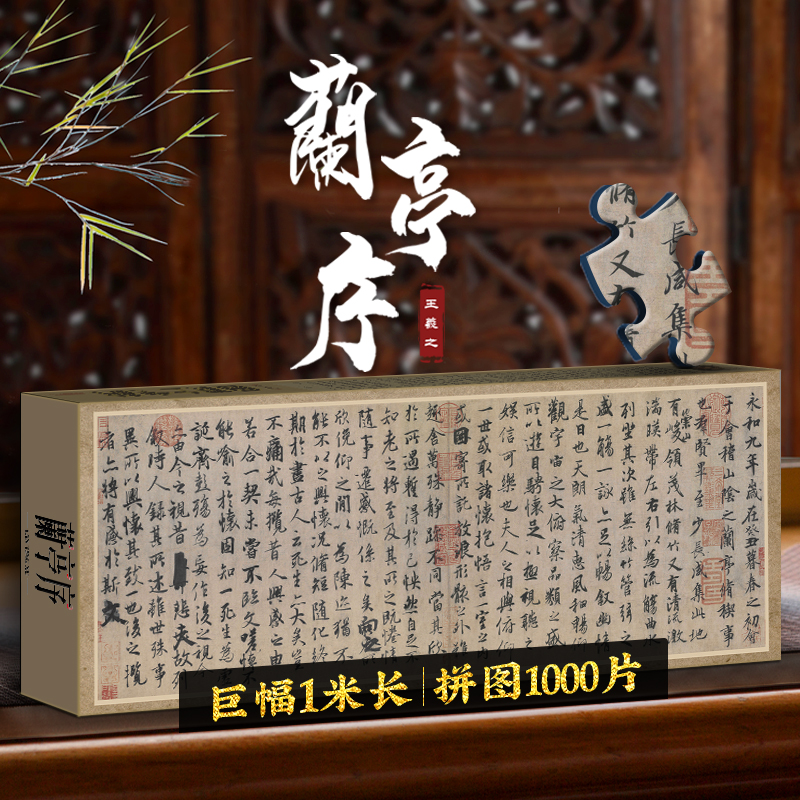 蘭亭序
王羲之
脩竹又
長咸集
蘭亭序
永和九年歲在癸丑暮春之初會
于會稽山陰之蘭亭脩稧事
也群賢畢至少長咸集此地
有崇山峻領茂林脩竹又有清流激
湍暎帶左右引以為流觴曲水
列坐其次雖無絲竹管弦之
盛一觴一詠亦足以暢叙幽情
是日也天朗氣清惠風和暢仰
觀宇宙之大俯察品類之盛
所以遊目騁懷足以極視聽之
娛信可樂也夫人之相與俯仰
一世或取諸懷抱悟言一室之內
或因寄所託放浪形骸之外雖
趣舍萬殊靜躁不同當其欣
於所遇蹔得於己快然自足不
知老之將至及其所之既惓情
隨事遷感慨係之矣向之所
欣俛仰之間以為陳迹猶不
能不以之興懷況脩短隨化終
期於盡古人云死生亦大矣豈
不痛哉每攬昔人興感之由
若合一契未嘗不臨文嗟悼不
能喻之於懷固知一死生為虛
誕齊彭殤為妄作後之視今
亦由今之視昔悲夫故列
敘時人錄其所述雖世殊事
異所以興懷其致一也後之攬
者亦將有感於斯文
巨幅1米长 拼图1000片